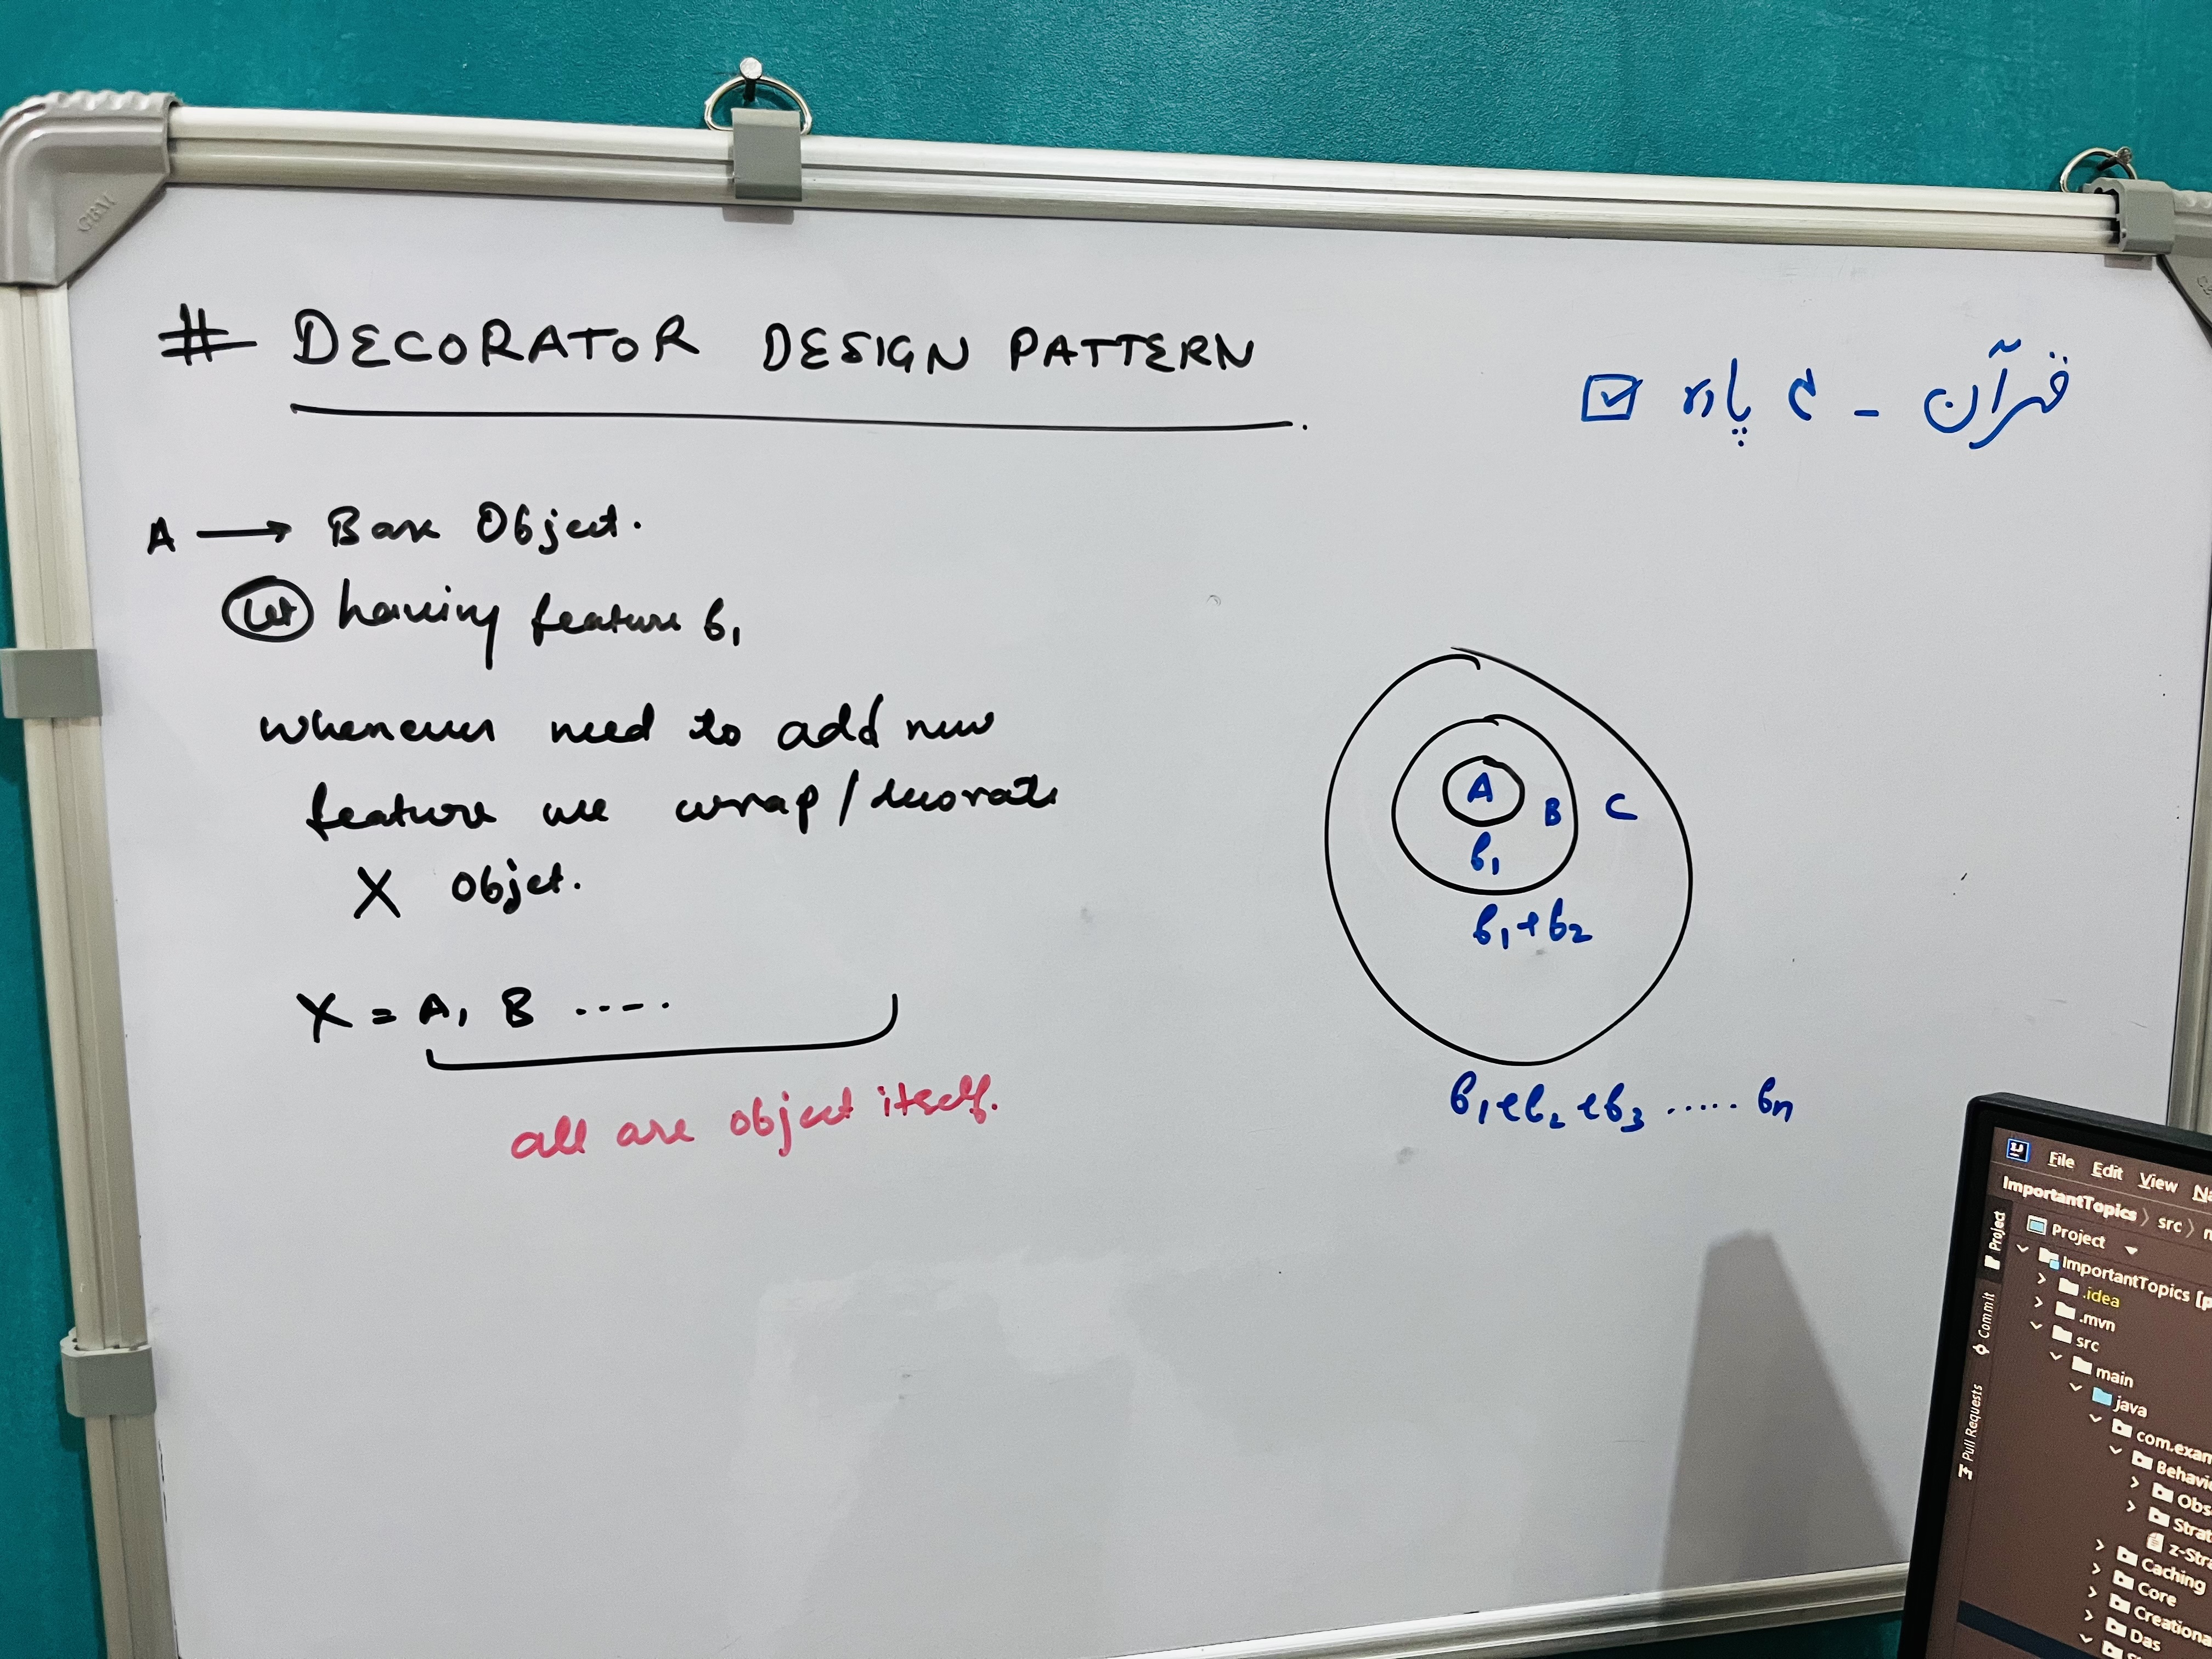 # DECORATOR DESIGN PATTERN.
قرآن - ۴ پارہ ☑
A → Base Object.
Let having feature b₁
whenever need to add new
feature we wrap/decorate
X objet.
X = A, B .....
all are object itself.
A
B
C
b₁
b₁+b₂
b₁+b₂+b₃ ..... bn
File Edit View
ImportantTopics > src >
Project
Project
ImportantTopics
.idea
.mvn
src
main
java
com.exam
Behavi
Obs
Strat
z-Stra
Caching
Core
Creationa
Das
Commit
Pull Requests
GBM